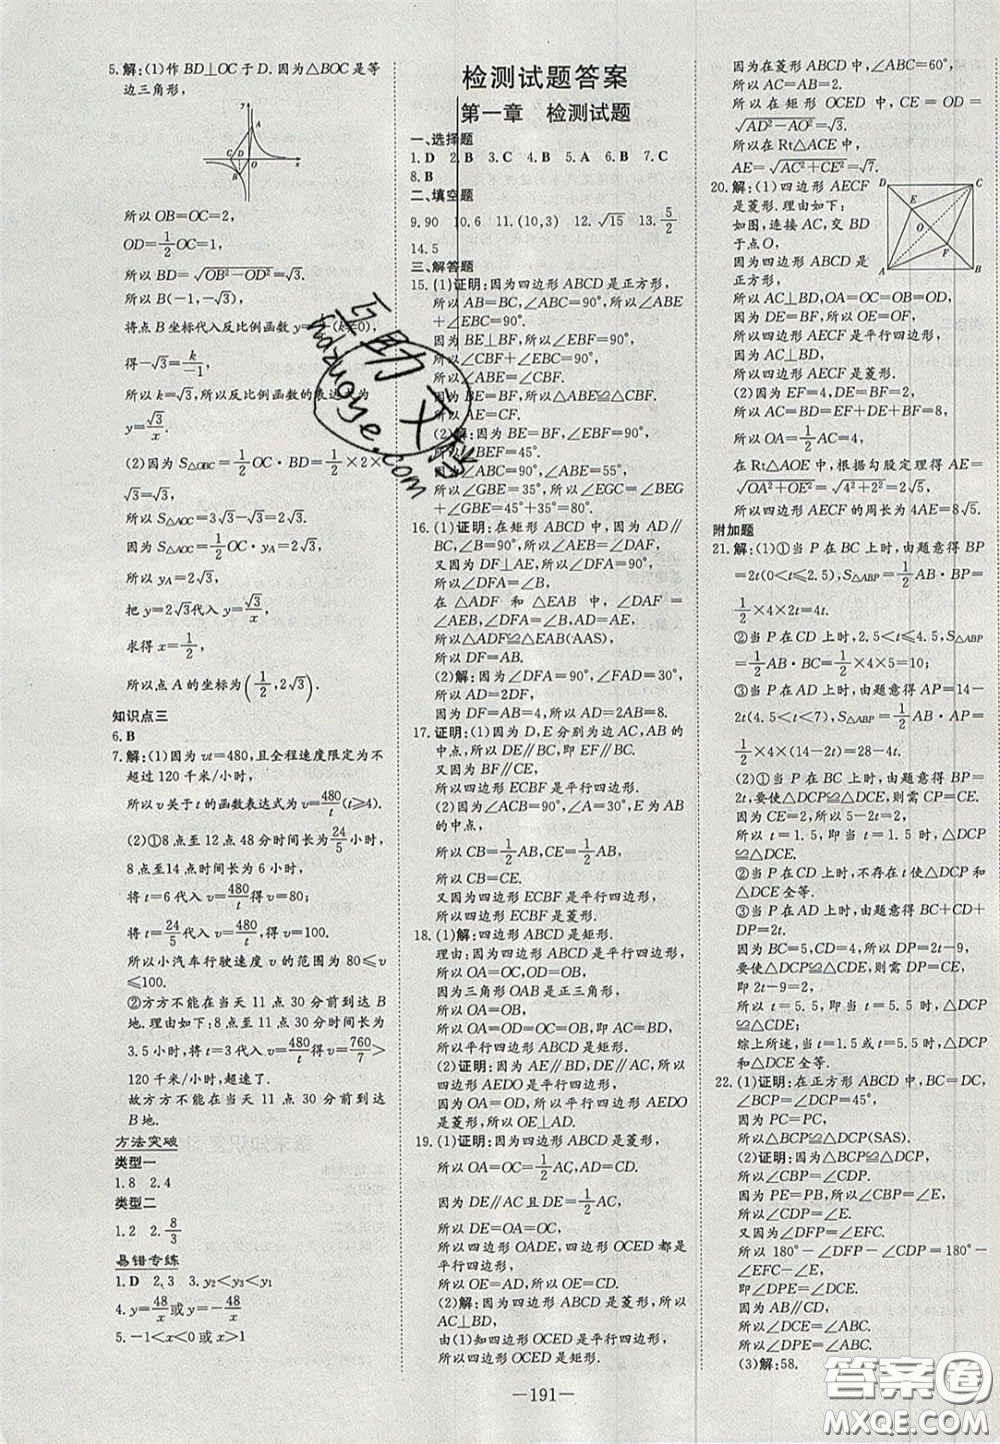 5.解:(1)作 BD⊥OC 于 D. 因为△BOC 是等
边三角形,
y
A
C D O x
B
所以 OB=OC=2,
OD=1/2OC=1.
所以 BD=√(OB²-OD²)=√3.
所以 B(-1,-√3),
将点 B 坐标代入反比例函数 y=k/x(k≠0),
得-√3=k/-1,
所以 k=√3,所以反比例函数的表达式为
y=√3/x.
(2)因为 S△OBC=1/2OC·BD=1/2×2×
√3=√3,
所以 S△AOC=3√3-√3=2√3.
因为 S△AOC=1/2OC·yA=2√3,
所以 yA=2√3.
把 y=2√3代入 y=√3/x,
求得 x=1/2,
所以点 A 的坐标为(1/2,2√3).
知识点三
6.B
7.解:(1)因为 vt=480,且全程速度限定为不
超过 120 千米/小时,
所以 v 关于 t 的函数表达式为 v=480/t(t≥4).
(2)①8 点至 12 点 48 分时间长为24/5小时,
8 点至14 点时间长为 6 小时,
将 t=6 代入 v=480/t得 v=80;
将 t=24/5代入 v=480/t,得 v=100.
所以小汽车行驶速度 v 的范围为 80≤v
≤100.
②方方不能在当天 11 点 30 分前到达 B
地.理由如下:8 点至 11 点 30 分时间长为
3.5 小时,将 t=3.5 代入 v=480/t得 v=960/7>
120 千米/小时,超速了.
故方方不能在当天 11 点 30 分前到达 B
地.
方法突破
类型一
1.8 2.4
类型二
1.2 2.8/3
易错专练
1.D 2.3 3.y₂<y₃<y₁
4.y=48/x或 y=-48/x
5.-1<x<0 或 x>1
检测试题答案
第一章 检测试题
一、选择题
1.D 2.B 3.C 4.C 5.A 6.B 7.C
8.B
二、填空题
9.90 10.6 11.(10,3) 12.√15 13.5/2
14.5
三、解答题
15.(1)证明:因为四边形 ABCD 是正方形,
所以 AB=BC,∠ABC=90°,
所以∠ABE+∠EBC=90°.
因为 BE⊥BF,所以∠EBF=90°,
所以∠CBF+∠EBC=90°,
所以∠ABE=∠CBF.
因为 BE=BF,所以△ABE≌△CBF.
所以 AE=CF.
(2)解:因为 BE=BF,∠EBF=90°,
所以∠BEF=45°.
因为∠ABC=90°,∠ABE=55°,
所以∠GBE=35°,所以∠EGC=∠GBE+
∠GEB=45°+35°=80°.
16.(1)证明:因为在矩形 ABCD 中,因为AD∥
BC,∠B=90°,所以∠AEB=∠DAF,
又因为 DF⊥AE,所以∠DFA=90°,
所以∠DFA=∠B,
在 △ADF 和 △EAB 中,∠DAF =
∠AEB,∠DFA=∠B,AD=EA,
所以△ADF≌△EAB(AAS).
所以 DF=AB.
(2)解:因为∠DFA=90°,∠FAD=30°,
所以 AD=2DF,
因为 DF=AB=4,所以 AD=2AB=8.
17.证明:(1)因为 D,E 分别为边 AC,AB 的
中点,所以 DE∥BC,即 EF∥BC.
又因为 BF∥CE,
所以四边形 ECBF 是平行四边形.
(2)因为∠ACB=90°,∠A=30°,E 为 AB
的中点,
所以 CB=1/2AB,CE=1/2AB.
所以 CB=CE.
又因为四边形 ECBF 是平行四边形,
所以四边形 ECBF 是菱形.
18.(1)解:四边形 ABCD 是矩形.
理由:因为四边形 ABCD 是平行四边形,
所以 OA=OC,OD=OB,
因为三角形 OAB 是正三角形,
所以 OA=OB.
所以 OA=OD=OC=OB,即 AC=BD.
所以平行四边形 ABCD 是矩形.
(2)证明:因为四边形 AEDO 是平行四边
形,OA=OD,所以平行四边形 AEDO
是菱形,所以 OE⊥AD.
19.(1)证明:因为四边形 ABCD 是菱形,
所以 OA=OC=1/2AC,AD=CD.
因为 DE∥AC 且 DE=1/2AC,
所以 DE=OA=OC.
所以四边形 OADE,四边形 OCED 都是
平行四边形,
所以 OE=AD,
所以 OE=CD.
(2)解:因为四边形 ABCD 是菱形,所以
AC⊥BD,
由(1)知四边形 OCED 是平行四边形,
所以四边形 OCED 是矩形.
因为在菱形 ABCD 中,∠ABC=60°,
所以 AC=AB=2.
所以在矩形 OCED 中,CE=OD=
√(AD²-AO²)=√3.
所以在 Rt△ACE 中,
AE=√(AC²+CE²)=√7.
20.解:(1)四边形 AECF
是菱形.理由如下:
如图,连接 AC,交 BD
于点O,
因为四边形 ABCD 是
正方形,
D C
E
O
F
A B
所以 AC⊥BD,OA=OC,OB=OD.
因为 DE=BF,所以 OE=OF,
所以四边形 AECF 是平行四边形,
因为 AC⊥EF,
所以四边形 AECF 是菱形.
(2)因为 EF=4,DE=BF=2,
所以 AC=BD=EF+DE+BF=8.
所以 OA=1/2AC=4.
在 Rt△AOE 中,根据勾股定理得 AE=
√(OA²+OE²)=√(4²+2²)=2√5,
所以四边形 AECF 的周长为 4AE=8√5.
附加题
21.解:(1)①当 P 在 BC 上时,由题意得 BP
=2t(0<t≤2.5),S△ABP=1/2AB·BP=
1/2×4×2t=4t.
②当 P 在 CD 上时,2.5<t≤4.5,S△ABP=
1/2AB·BC=1/2×4×5=10;
③当 P 在 AD 上时,由题意得 AP=14-
2t(4.5<t<7),S△ABP=1/2AB·AP=
1/2×4×(14-2t)=28-4t.
(2)①当 P 在 BC 上时,由题意得 BP=
2t,要使△DCP≌△DCE,则需 CP=CE.
因为 CE=2,所以 5-2t=2,
所以 t=1.5,即当 t=1.5 时,△DCP
≌△DCE.
②当 P 在 CD 上时,不存在 t使△DCP 和
△DCE 全等.
③当 P 在 AD 上时,由题意得 BC+CD+
DP=2t.
因为 BC=5,CD=4,所以 DP=2t-9,
要使△DCP≌△CDE,则需 DP=CE,
即 2t-9=2,
所以 t=5.5,即当 t=5.5 时,△DCP
≌△CDE;
综上所述,当 t=1.5 或 t=5.5 时,△DCP
和△DCE 全等.
22.(1)证明:在正方形 ABCD 中,BC=DC,
∠BCP=∠DCP=45°,
因为 PC=PC,
所以△BCP≌△DCP(SAS).
(2)证明:因为△BCP≌△DCP,
所以∠CBP=∠CDP.
因为 PE=PB,所以∠CBP=∠E,
所以∠CDP=∠E.
又因为∠DFP=∠EFC.
所以 180°-∠DFP-∠CDP=180°-
∠EFC-∠E,
即∠DPE=∠DCE.
因为 AB∥CD,
所以∠DCE=∠ABC,
所以∠DPE=∠ABC.
(3)解:58.
—191—
互助文档
huzuoye.com
答案圈
MXQE.COM